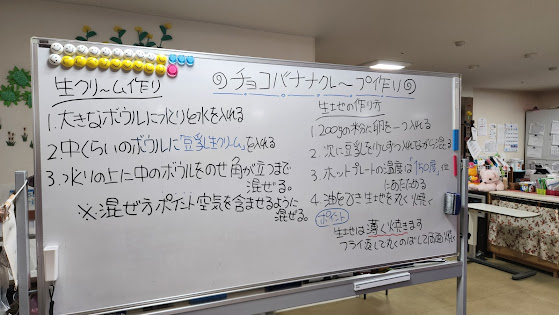 チョコバナナクレープ作り
生クリーム作り
1.大きなボウルに氷りと水を入れる
2.中くらいのボウルに「豆乳生クリーム」を入れる
3.氷りの上に中のボウルをのせ 角が立つまで
混ぜる。
※混ぜ方ポイント空気を含ませるように
混ぜる。
生地の作り方
1.200gの米粉に卵を一つ入れる
2.次に豆乳を少しずつ入れながら混ぜる
3.ホットプレートの温度は「150度」位
にあたためる
4.油をひき生地を丸く焼く
ポイント
生地は薄く焼きます
フライ返しで丸くのばして両面焼く